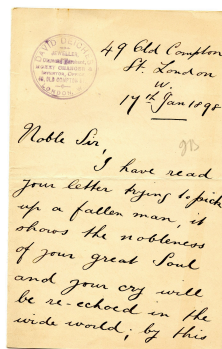 DAVID DEICHES
JEWELLER,
LONDON.
49 Old Compton
St. London
W.
17th Jan 1898
Noble Sir,
I have read
your letter trying to pick
up a fallen man, it
shows the nobleness
of your great Soul
and your cry will
be re-echoed in the
wide world; by this